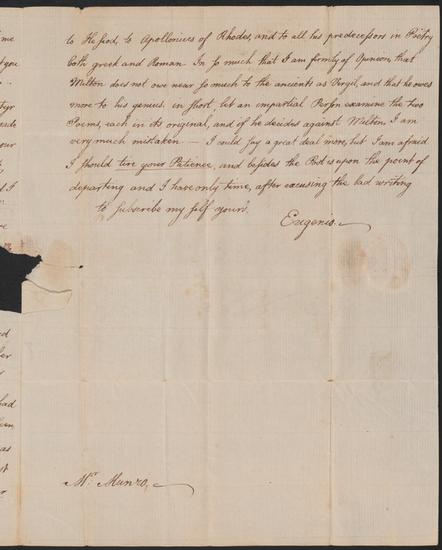 to Hesiod, to Apollonius of Rhodes, and to all his predecessors in Poetry
both greek and Roman. In so much that I am firmly of Opinion, that
Milton does not owe near so much to the ancients as Vergil, and that he owes
more to his genius. in short let an impartial Person examine the two
Poems, each in its original, and if he decides against Milton, I am
very much mistaken — I could say a great deal more, but I am afraid
I should tire your Patience, and besides the Post is upon the point of
departing and I have only time, after excusing the bad writing
to subscribe my self yours
Eugenio.
Mr Munro,